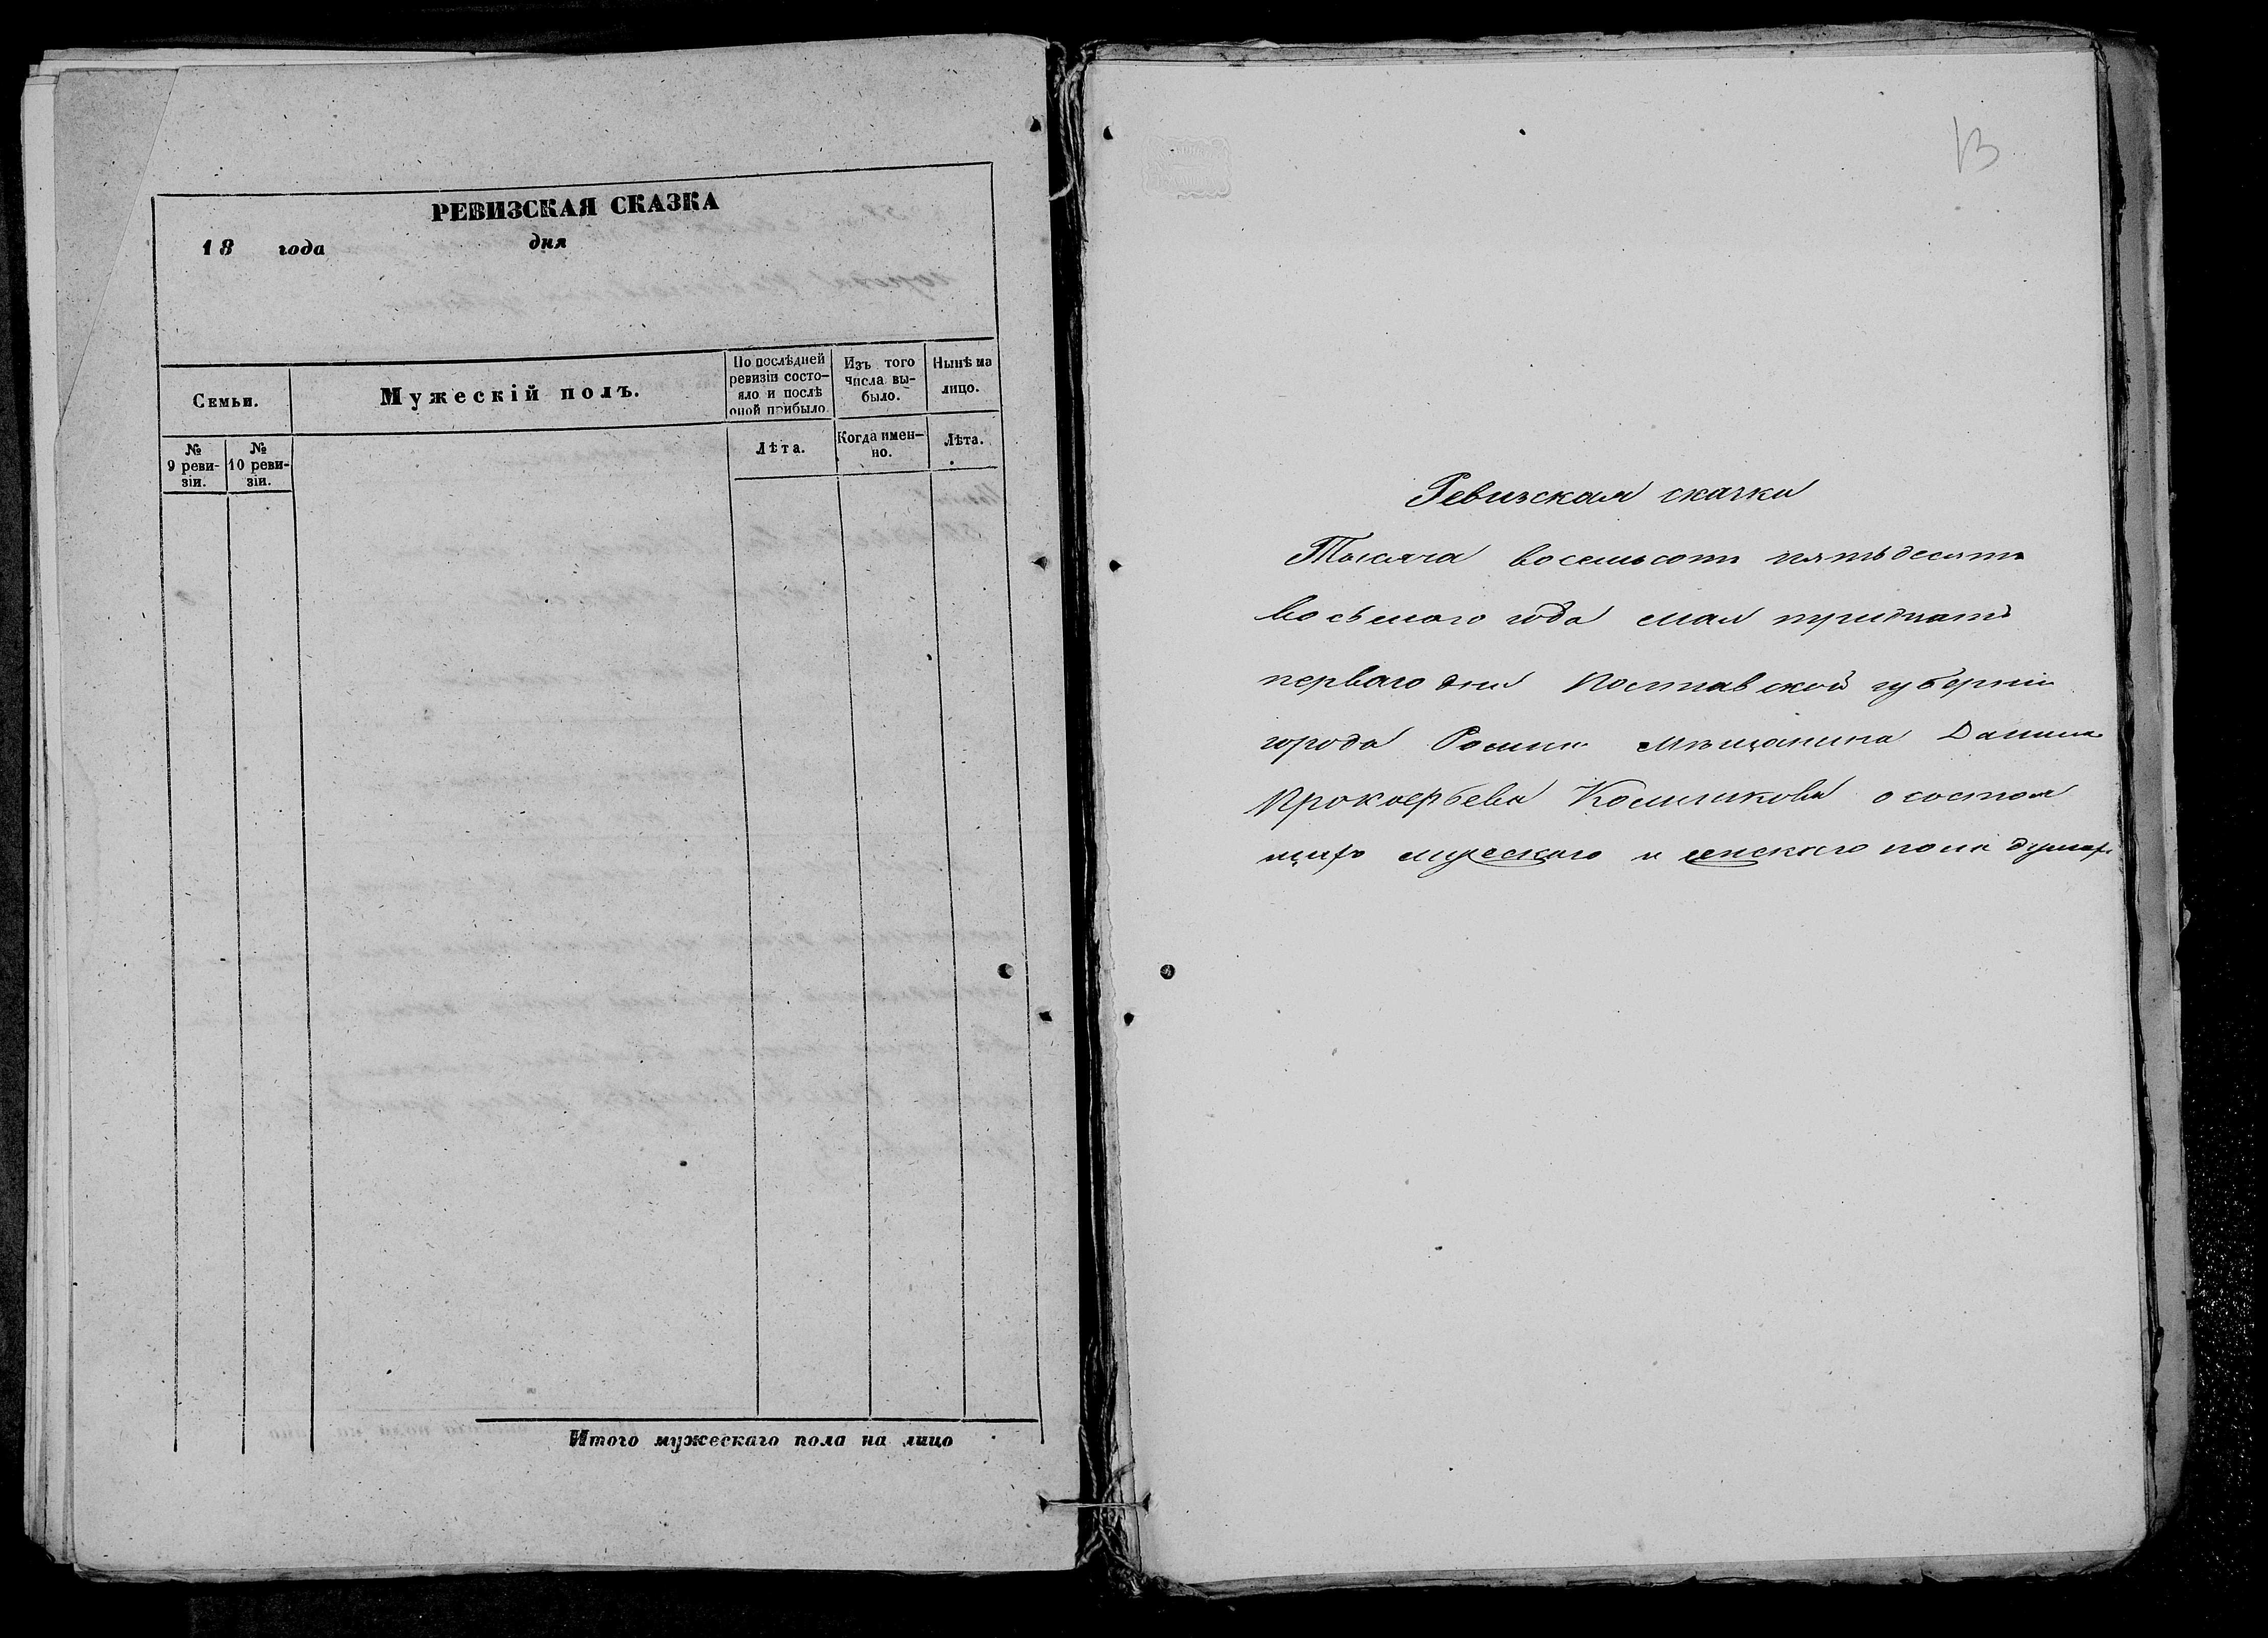 РЕВИЗСКАЯ СКАЗКА
18 года дня
Семьи.
Мужескій полъ.
По послѣдней ревизіи состо-яло и послѣ оной прибыло.
Изъ того числа вы-было.
Нынѣ на лицо.
№ 9 реви-зіи.
№ 10 реви-зіи.
Лѣта.
Когда имен-но.
Лѣта.
Итого мужескаго пола на лицо
13
Ревизская сказка
Тысяча восемьсотъ пятьдесятъ
восьмого года мая тридцать
перваго дня Полтавской губерніи
города Роменъ мѣщанина Данила
Прокофьева о состоя
щихъ мужескаго и женскаго пола душахъ